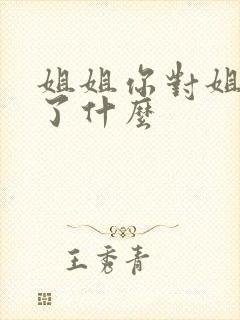 姐姐你對姐
了什麼
王秀青